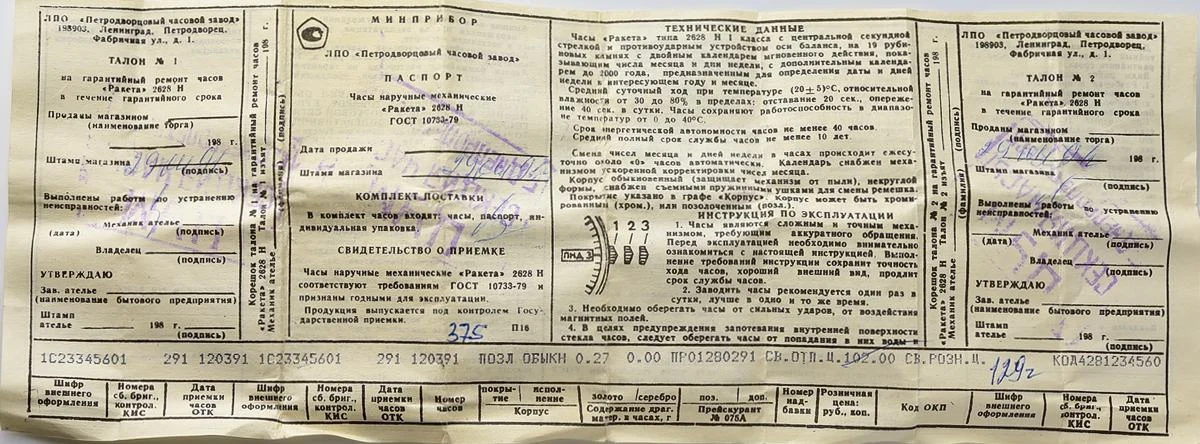 ЛПО «Петродворцовый часовой завод»
198903, Ленинград, Петродворец,
Фабричная ул., д. 1.
ТАЛОН № 1
на гарантийный ремонт часов
«Ракета» 2628 Н
в течение гарантийного срока
Проданы магазином
(наименование торга)
198 г.
Штамп магазина
(подпись)
Выполнены работы по устранению
неисправностей:
Механик ателье
(дата) (подпись)
Владелец
(подпись)
УТВЕРЖДАЮ
Зав. ателье
(наименование бытового предприятия)
Штамп
ателье 198 г.
(подпись)
Корешок талона № 1 на гарантийный ремонт часов
«Ракета» 2628 Н Талон № 1 изъят 198 г.
Механик ателье (фамилия) (подпись)
МИНПРИБОР
ЛПО «Петродворцовый часовой завод»
ПАСПОРТ
Часы наручные механические
«Ракета» 2628 Н
ГОСТ 10733-79
Дата продажи
Штамп магазина
КОМПЛЕКТ ПОСТАВКИ
В комплект часов входят: часы, паспорт, ин-
дивидуальная упаковка.
СВИДЕТЕЛЬСТВО О ПРИЕМКЕ
Часы наручные механические «Ракета» 2628 Н
соответствуют требованиям ГОСТ 10733-79 и
признаны годными для эксплуатации.
Продукция выпускается под контролем Госу-
дарственной приемки.
375
П16
ТЕХНИЧЕСКИЕ ДАННЫЕ
Часы «Ракета» типа 2628 Н I класса с центральной секундной
стрелкой и противоударным устройством оси баланса, на 19 руби-
новых камнях с двойным календарем мгновенного действия, пока-
зывающим числа месяца и дни недели, с дополнительным календа-
рем до 2000 года, предназначенным для определения даты и дней
недели в интересующем году и месяце.
Средний суточный ход при температуре (20±5)°С, относительной
влажности от 30 до 80% в пределах: отставание 20 сек., опереже-
ние 40 сек. в сутки. Часы сохраняют работоспособность в диапазо-
не температур от 0 до 40°С.
Срок энергетической автономности часов не менее 40 часов.
Средний полный срок службы часов не менее 10 лет.
Смена чисел месяца и дней недели в часах происходит ежесу-
точно около «0» часов автоматически. Календарь снабжен меха-
низмом ускоренной корректировки чисел месяца.
Корпус обыкновенный (защищает механизм от пыли), некруглой
формы, снабжен съемными пружинными ушками для смены ремешка.
Покрытие указано в графе «Корпус». Корпус может быть хроми-
рованным (хром.), или позолоченным (позл.).
ИНСТРУКЦИЯ ПО ЭКСПЛУАТАЦИИ
1 2 3
ПНД 3
1. Часы являются сложным и точным меха-
низмом, требующим аккуратного обращения.
Перед эксплуатацией необходимо внимательно
ознакомиться с настоящей инструкцией. Выпол-
нение требований инструкции сохранит точность
хода часов, хороший внешний вид, продлит
срок службы часов.
2. Заводить часы рекомендуется один раз в
сутки, лучше в одно и то же время.
3. Необходимо оберегать часы от сильных ударов, от воздействия
магнитных полей.
4. В целях предупреждения запотевания внутренней поверхности
стекла часов, следует оберегать часы от попадания в них воды и
Корешок талона № 2 на гарантийный ремонт часов
«Ракета» 2628 Н Талон № 2 изъят 198 г.
Механик ателье (фамилия) (подпись)
ЛПО «Петродворцовый часовой завод»
198903, Ленинград, Петродворец,
Фабричная ул., д. 1.
ТАЛОН № 2
на гарантийный ремонт часов
«Ракета» 2628 Н
в течение гарантийного срока
Проданы магазином
(наименование торга)
198 г.
Штамп магазина
(подпись)
Выполнены работы по устранению
неисправностей:
Механик ателье
(дата) (подпись)
Владелец
(подпись)
УТВЕРЖДАЮ
Зав. ателье
(наименование бытового предприятия)
Штамп
ателье 198 г.
(подпись)
1С23345601 291 120391 1С23345601 291 120391 ПОЗЛ ОБЫКН 0.27 0.00 ПР01280291 СВ.ОТП.Ц.102.00 СВ.РОЗН.Ц. КОД4281234560
129г
Шифр внешнего оформления
Номера сб. бриг., контрол. КИС
Дата приемки часов ОТК
Шифр внешнего оформления
Номера сб. бриг., контрол. КИС
Дата приемки часов ОТК
Номер часов
покры-тие
испол-нение
Корпус
золото
серебро
Содержание драг. матер. в часах, г
поз.
доп.
Прейскурант № 075А
Номер над-бавки
Розничная цена: руб., коп.
Код ОКП
Шифр внешнего оформления
Номера сб. бриг., контрол. КИС
Дата приемки часов ОТК